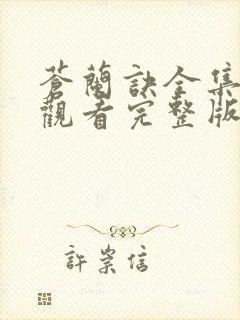 蒼蘭訣全集
觀看完整版
許崇信